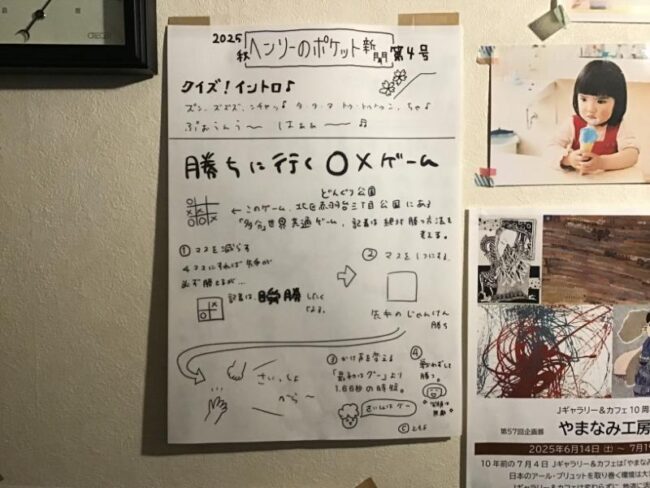 2025
秋 ヘンリーのポケット新聞 第4号
クイズ!イントロ♪
ぷおぅんぅ〜 はぁぁ〜 ♫
勝ちに行く〇×ゲーム
どんぐり公園
← このゲーム、北区赤羽台三丁目公園にある
「多分」世界共通ゲーム。記者は絶対勝つ方法を
考える。
① マスを減らす
4マスにすれば先手が
必ず勝てるが…
記者は、瞬勝したく
なる。
② マスを1つにする
先手のじゃんけん
勝ち
③ かけ声を変える
「最初はグー」より
1.66秒の時短。
さいしょ
ぐー
④
戦わずして
勝つ。
Jギャラリー&カフェ10周
第57回企画展 やまなみ工房
2025年6月14日(土)〜7月1
10年前の7月4日 Jギャラリー&カフェは「やまな
日本のアール・ブリュットを取り巻く環境は大